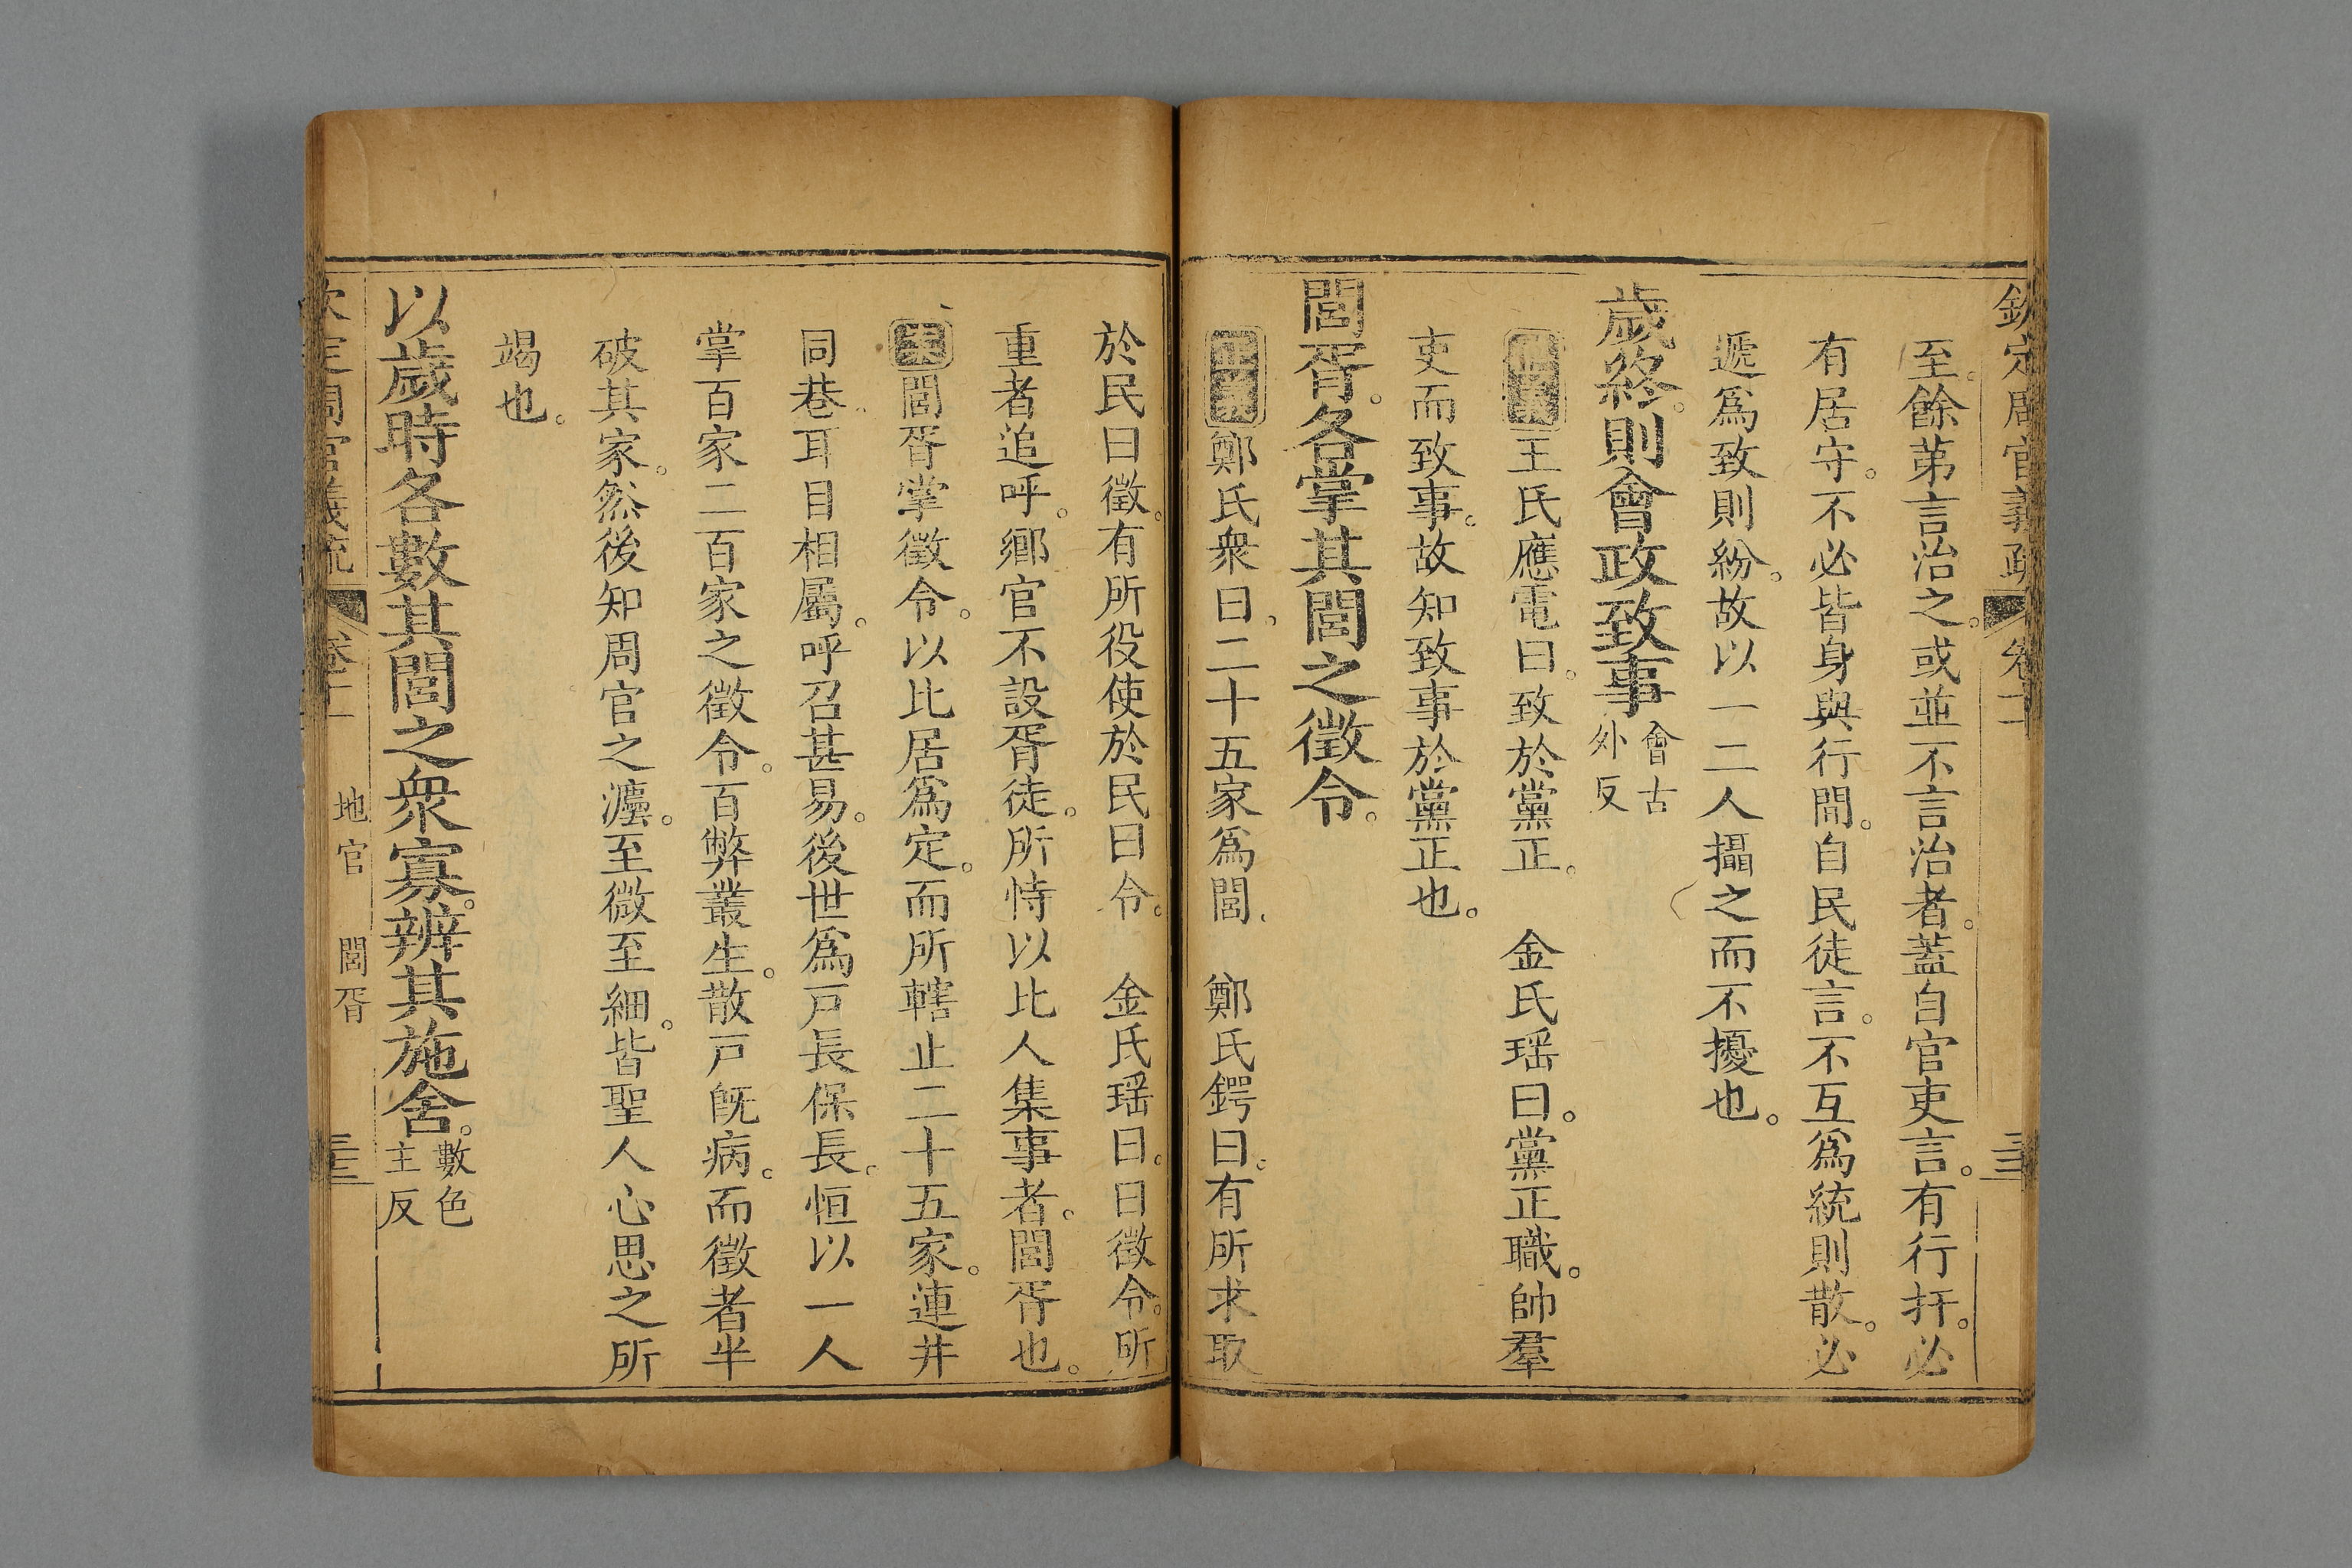 欽定周官義疏 卷十一
至。餘苐言治之。或並不言治者。蓋自官吏言。有行扞。必
有居守。不必皆身與行間。自民徒言。不互爲統則散。必
遞爲致則紛。故以一二人攝之而不擾也。
歲終。則會政致事 會古外反
正義王氏應電曰。致於黨正。 金氏瑶曰。黨正職。帥羣
吏而致事。故知致事於黨正也。
閭胥。各掌其閭之徵令。
正義鄭氏衆曰。二十五家爲閭、 鄭氏鍔曰。有所求取
於民曰徵。有所役使於民曰令。 金氏瑶曰。曰徵令。所
重者追呼。鄉官不設胥徒。所恃以比人集事者。閭胥也。
案閭胥掌徵令。以比居爲定。而所轄止二十五家。連井
同巷。耳目相屬。呼召甚易。後世爲戸長保長。恒以一人
掌百家二百家之徵令。百弊叢生。散戸旣病。而徵者半
破其家。然後知周官之灋。至微至細。皆聖人心思之所
竭也。
以歲時各數其閭之衆寡。辨其施舍。 數色主反
欽定周官義疏 卷十一 地官 閭胥 三三